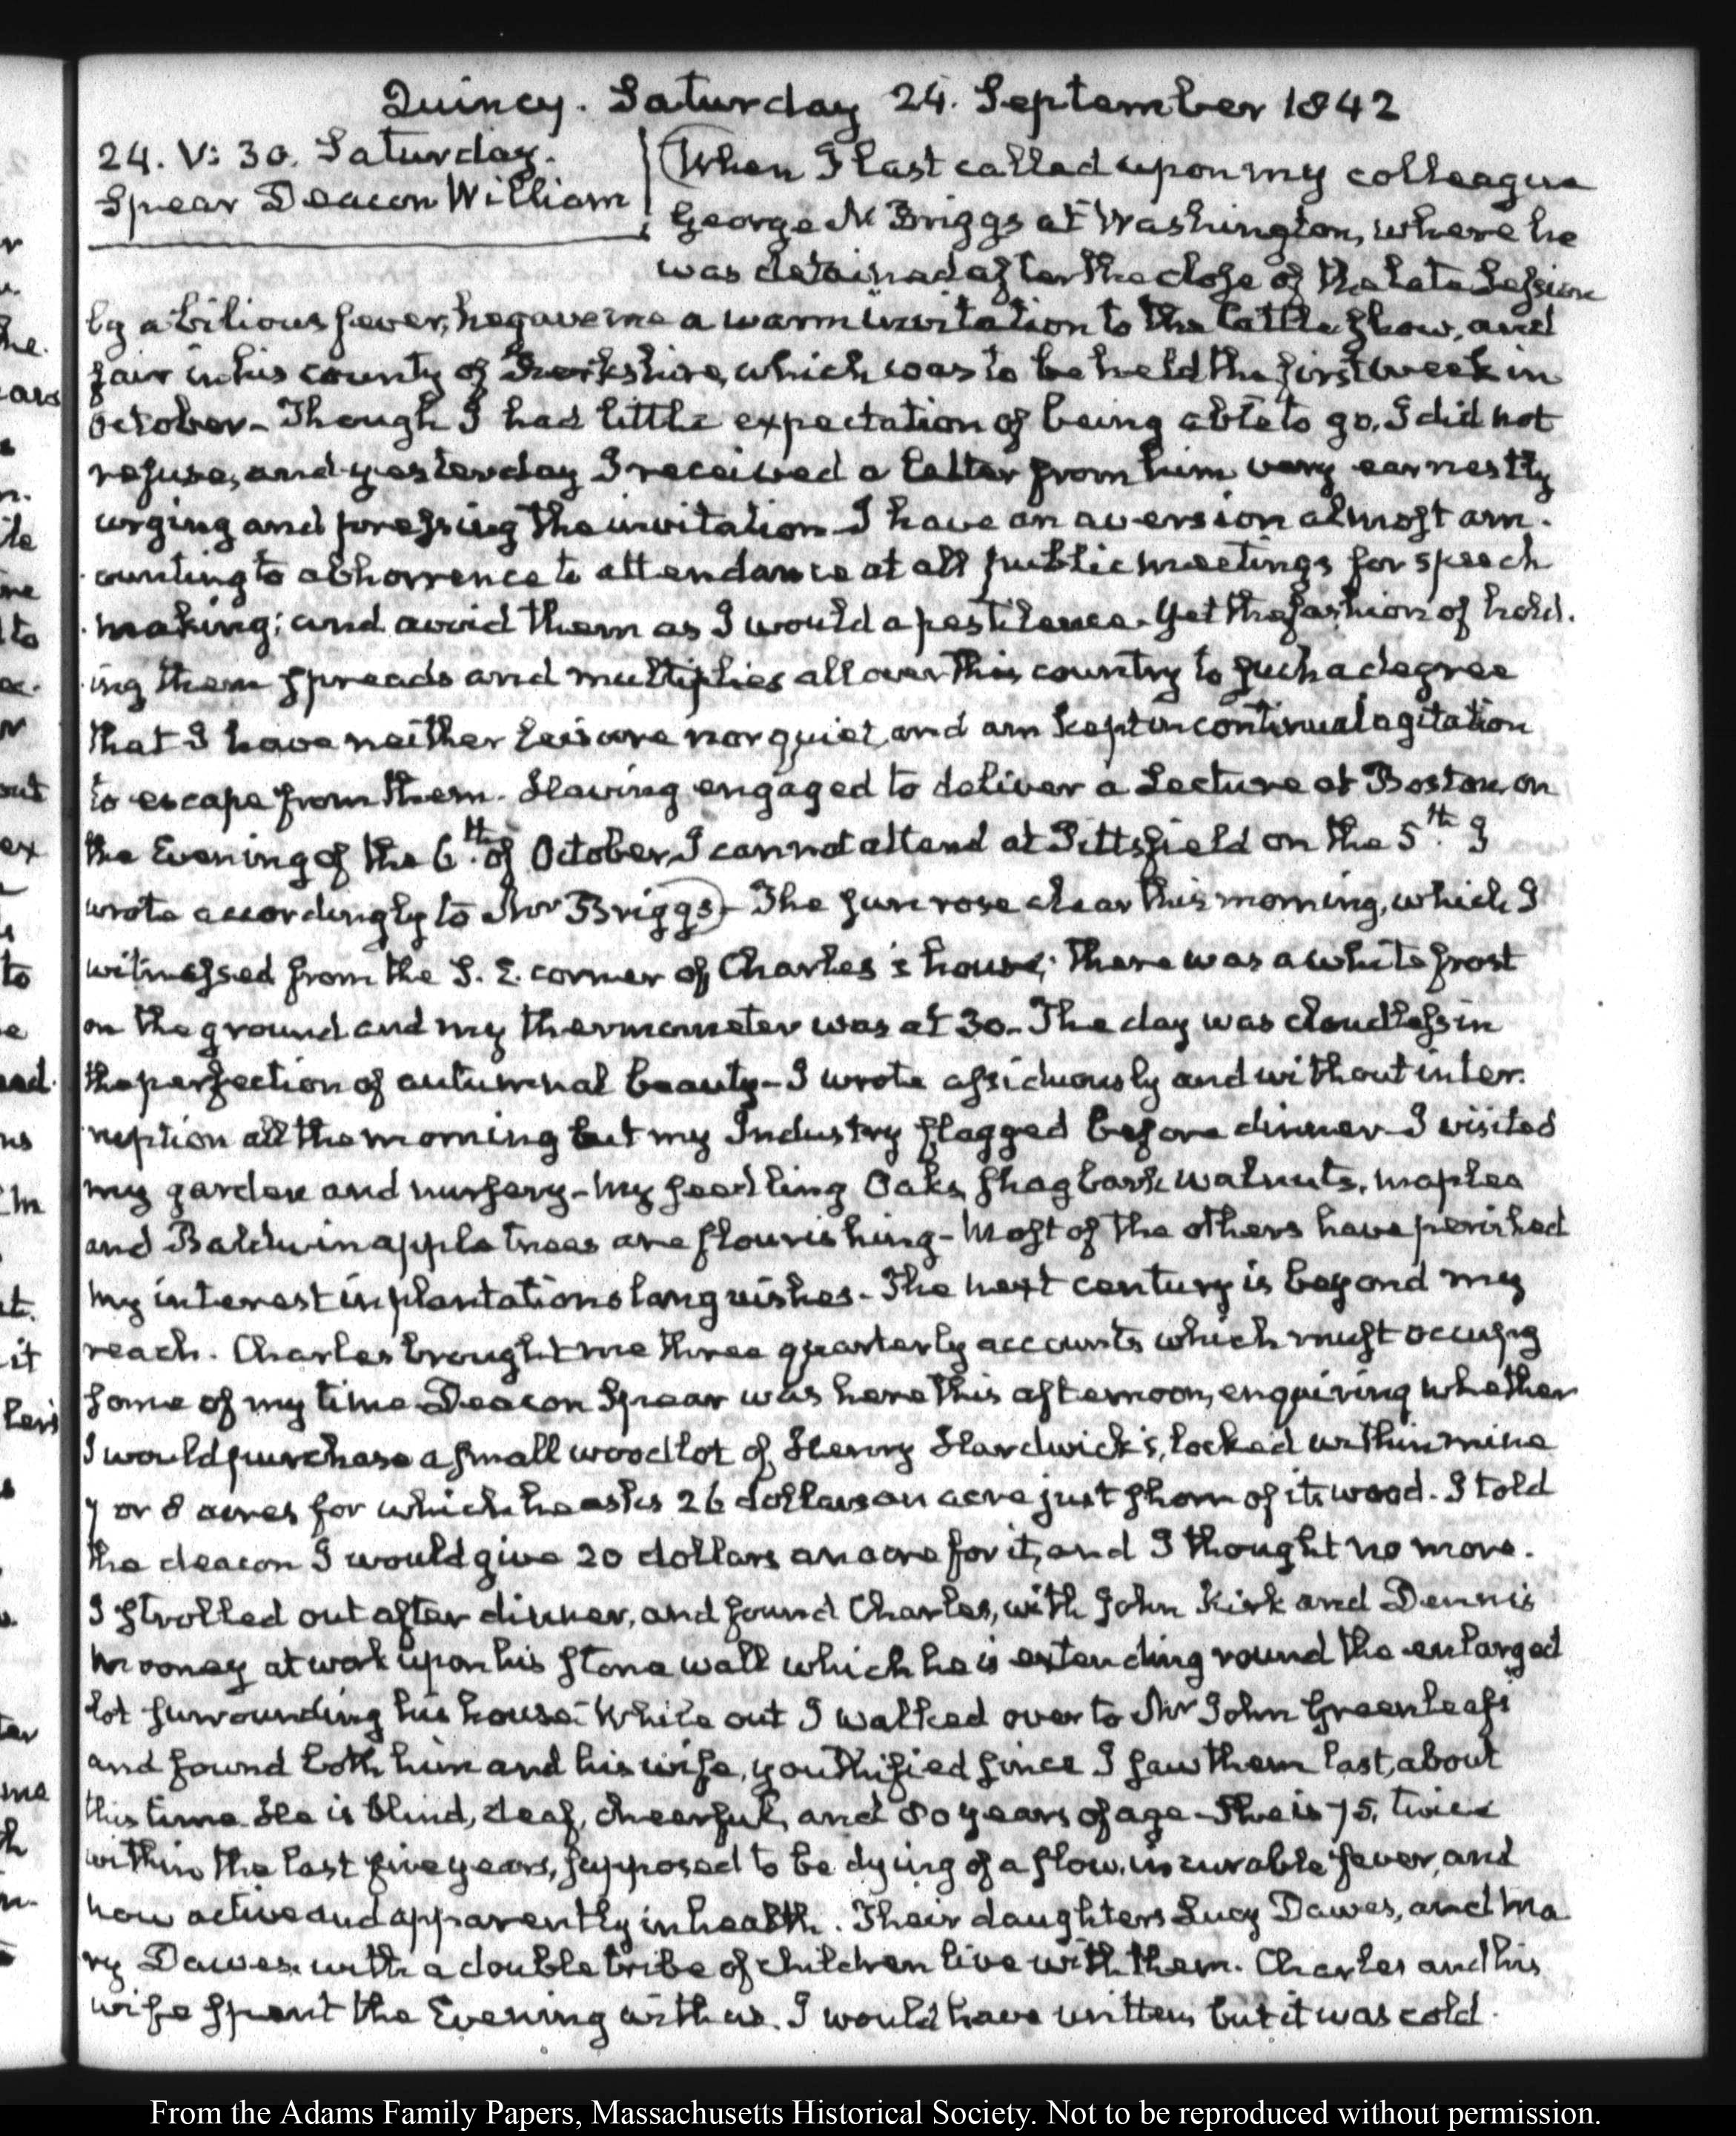 Quincy. Saturday 24. September 1842
24. V: 30. Saturday.
Spear Deacon William
When I last called upon my colleague
George N Briggs at Washington, where he
was detained after the close of the late Session
by a bilious fever, he gave me a warm invitation to the Cattle show, and
fair in his county of Berkshire, which was to be held the first week in
October - Though I had little expectation of being able to go, I did not
refuse, and yesterday I received a letter from him very earnestly
urging and pressing the invitation - I have an aversion almost am-
ounting to abhorrence to attendance at all public meetings for speech
making; and avoid them as I would a pestilence - Yet the fashion of hold-
ing them spreads and multiplies all over this country to such a degree
that I have neither leisure nor quiet, and am kept in continual agitation
to escape from them. Having engaged to deliver a Lecture at Boston, on
the Evening of the 6th. of October, I cannot attend at Pittsfield on the 5th. I
wrote accordingly to Mr Briggs - The sun rose clear this morning, which I
witnessed from the S. E. corner of Charles's house; there was a white frost
on the ground and my thermometer was at 30 - The day was cloudless in
the perfection of autumnal beauty - I wrote assiduously and without inter-
ruption all the morning but my Industry flagged before dinner - I visited
my garden and nursery - My seedling Oaks, shagbark walnuts, maples
and Baldwin apple trees are flourishing - Most of the others have perished
my interest in plantations languishes - The next century is beyond my
reach. Charles brought me three quarterly accounts which must occupy
some of my time - Deacon Spear was here this afternoon, enquiring whether
I would purchase a small woodlot of Henry Hardwick's, locked within mine
7 or 8 acres for which he asks 26 dollars an acre just shorn of its wood. I told
the deacon I would give 20 dollars an acre for it, and I thought no more.
I strolled out after dinner, and found Charles, with John Kirk and Dennis
Mooney at work upon his stone wall which he is extending round the enlarged
lot surrounding his house - While out I walked over to Mr John Greenleaf's
and found both him and his wife, youthified since I saw them last, about
this time He is blind, deaf, cheerful, and 80 years of age - She is 75, twice
within the last five years, supposed to be dying of a slow, incurable fever, and
now active and apparently in health. Their daughters Lucy Dawes, and Ma
ry Dawes with a double tribe of children live with them. Charles and his
wife spent the Evening with us. I would have written, but it was cold.
From the Adams Family Papers, Massachusetts Historical Society. Not to be reproduced without permission.